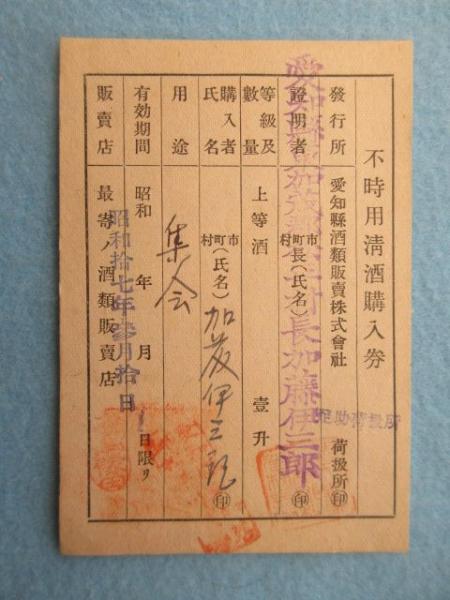 不時用淸酒購入券
發行所 愛知縣酒類販賣株式會社 足助荷扱所 荷扱所㊞
證明者 市町村長(氏名) ㊞
愛知縣東加茂郡 村長加藤伊三郎
等級及數量 上等酒 壹升
購入者氏名 市町村(氏名) 加藤伊三郎 ㊞
用途 集会
有効期間 昭和 年 月 日限リ
昭和拾七年參月拾日
販賣店 最寄ノ酒類販賣店